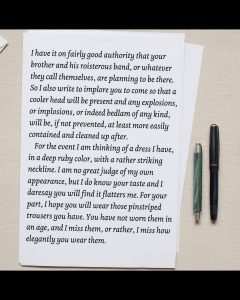 I have it on fairly good authority that your
brother and his roisterous band, or whatever
they call themselves, are planning to be there.
So I also write to implore you to come so that a
cooler head will be present and any explosions,
or implosions, or indeed bedlam of any kind,
will be, if not prevented, at least more easily
contained and cleaned up after.
For the event I am thinking of a dress I have,
in a deep ruby color, with a rather striking
neckline. I am no great judge of my own
appearance, but I do know your taste and I
daresay you will find it flatters me. For your
part, I hope you will wear those pinstriped
trousers you have. You have not worn them in
an age, and I miss them, or rather, I miss how
elegantly you wear them.